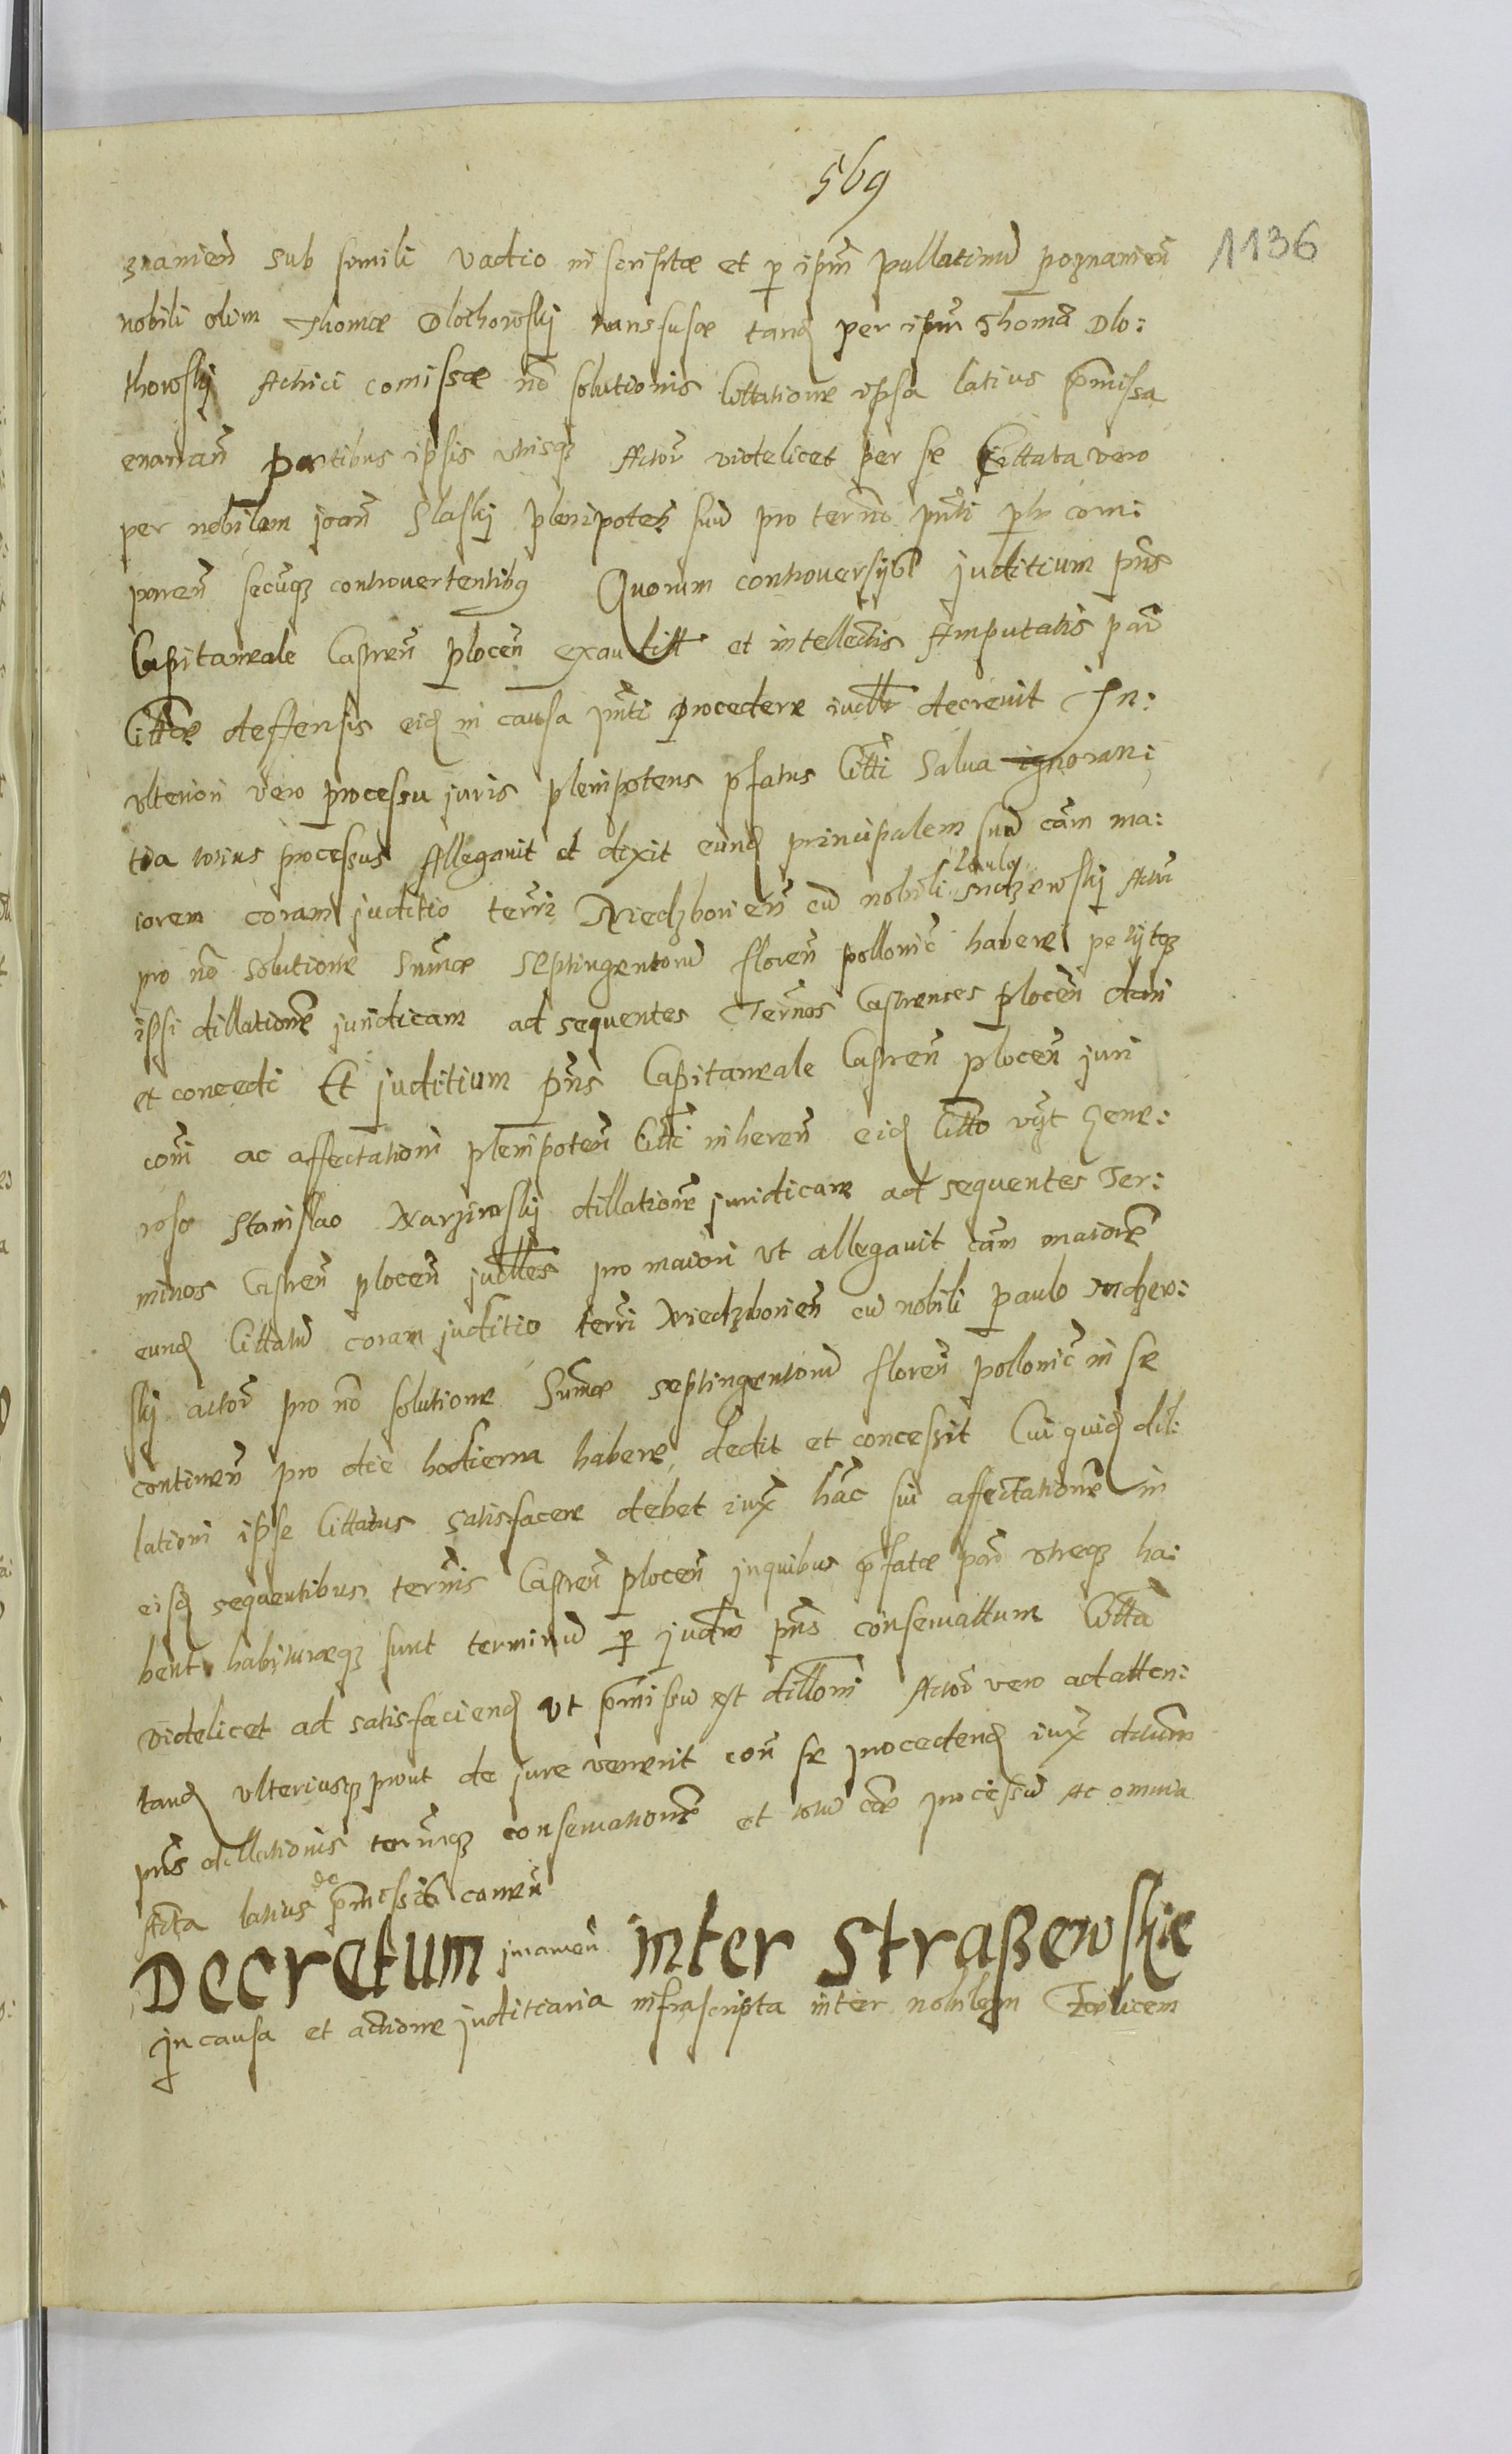 569
1136
znanien sub simili vadio inscriptæ et p ipm pallatinu poznanien
nobili olim Thomæ Dlothowskj transfusæ tand per ipm Thoma Dlo:
thowskj Actrici comissæ no solutionis Cittatione ipsa latius pmissa
enarran partibus ipsis utrisq Actor videlicet per se Cittata vero
per nobilem joan Slaskj plenipoten suu pro termno pnti ptr com:
paren secuq controvertentibq Quorum controversijs juditium pns
Capitaneale Castren plocen exauditt et intellectis Amputatis par
Cittæ deffensis eid in causa pnti procedere judtt decrevit In:
ulteriori vero processu juris plenipotens pfatus Citti salva ignoran:
tia totius processus Allegavit et dixit eund principalem suu cam ma:
iorem coram juditio terri Niedzborien cu nobili Paulo
pro no solutione sumæ septingentoru floren pollonic habere petijtq
ipsi dillatione juridicam ad sequentes Termos Castrenses plocen dari
et concedi Et juditium pns Capitaneale Castren plocen juri
com ac affectationi plenipoten Citti inheren eid Citto vgt gene:
roso Stanislao dillatione juridicam ad sequentes Ter:
minos Castren plocen judttes pro maiori ut allegavit cam maiore
eund Cittatu coram juditio terri Niedzborien cu nobili paulo
skj actor pro no solutione Sumæ septingentoru floren pollonic in se
continen pro die hodierna habere, dedit et concessit Cui quid dil:
lationi ipse Cittatus satisfacere debet iux hac sui affectatione in
eisd sequentibus termis Castren plocen in quibus pfatæ par utreq ha:
bent habituræq sunt terminu p judm pns conservattum Citta
videlicet ad satisfaciend ut pmissu est dilloni Actor vero ad atten:
tand ulteriusq prout de jure venerit con se procedend iux datam
pns dillationis termq conservatione et totu processu Ac omnia
Acta latius de pmissis conen
Decretum inter Straßewskie
In causa et actione juditiaria infrascripta inter nobilem Felicem